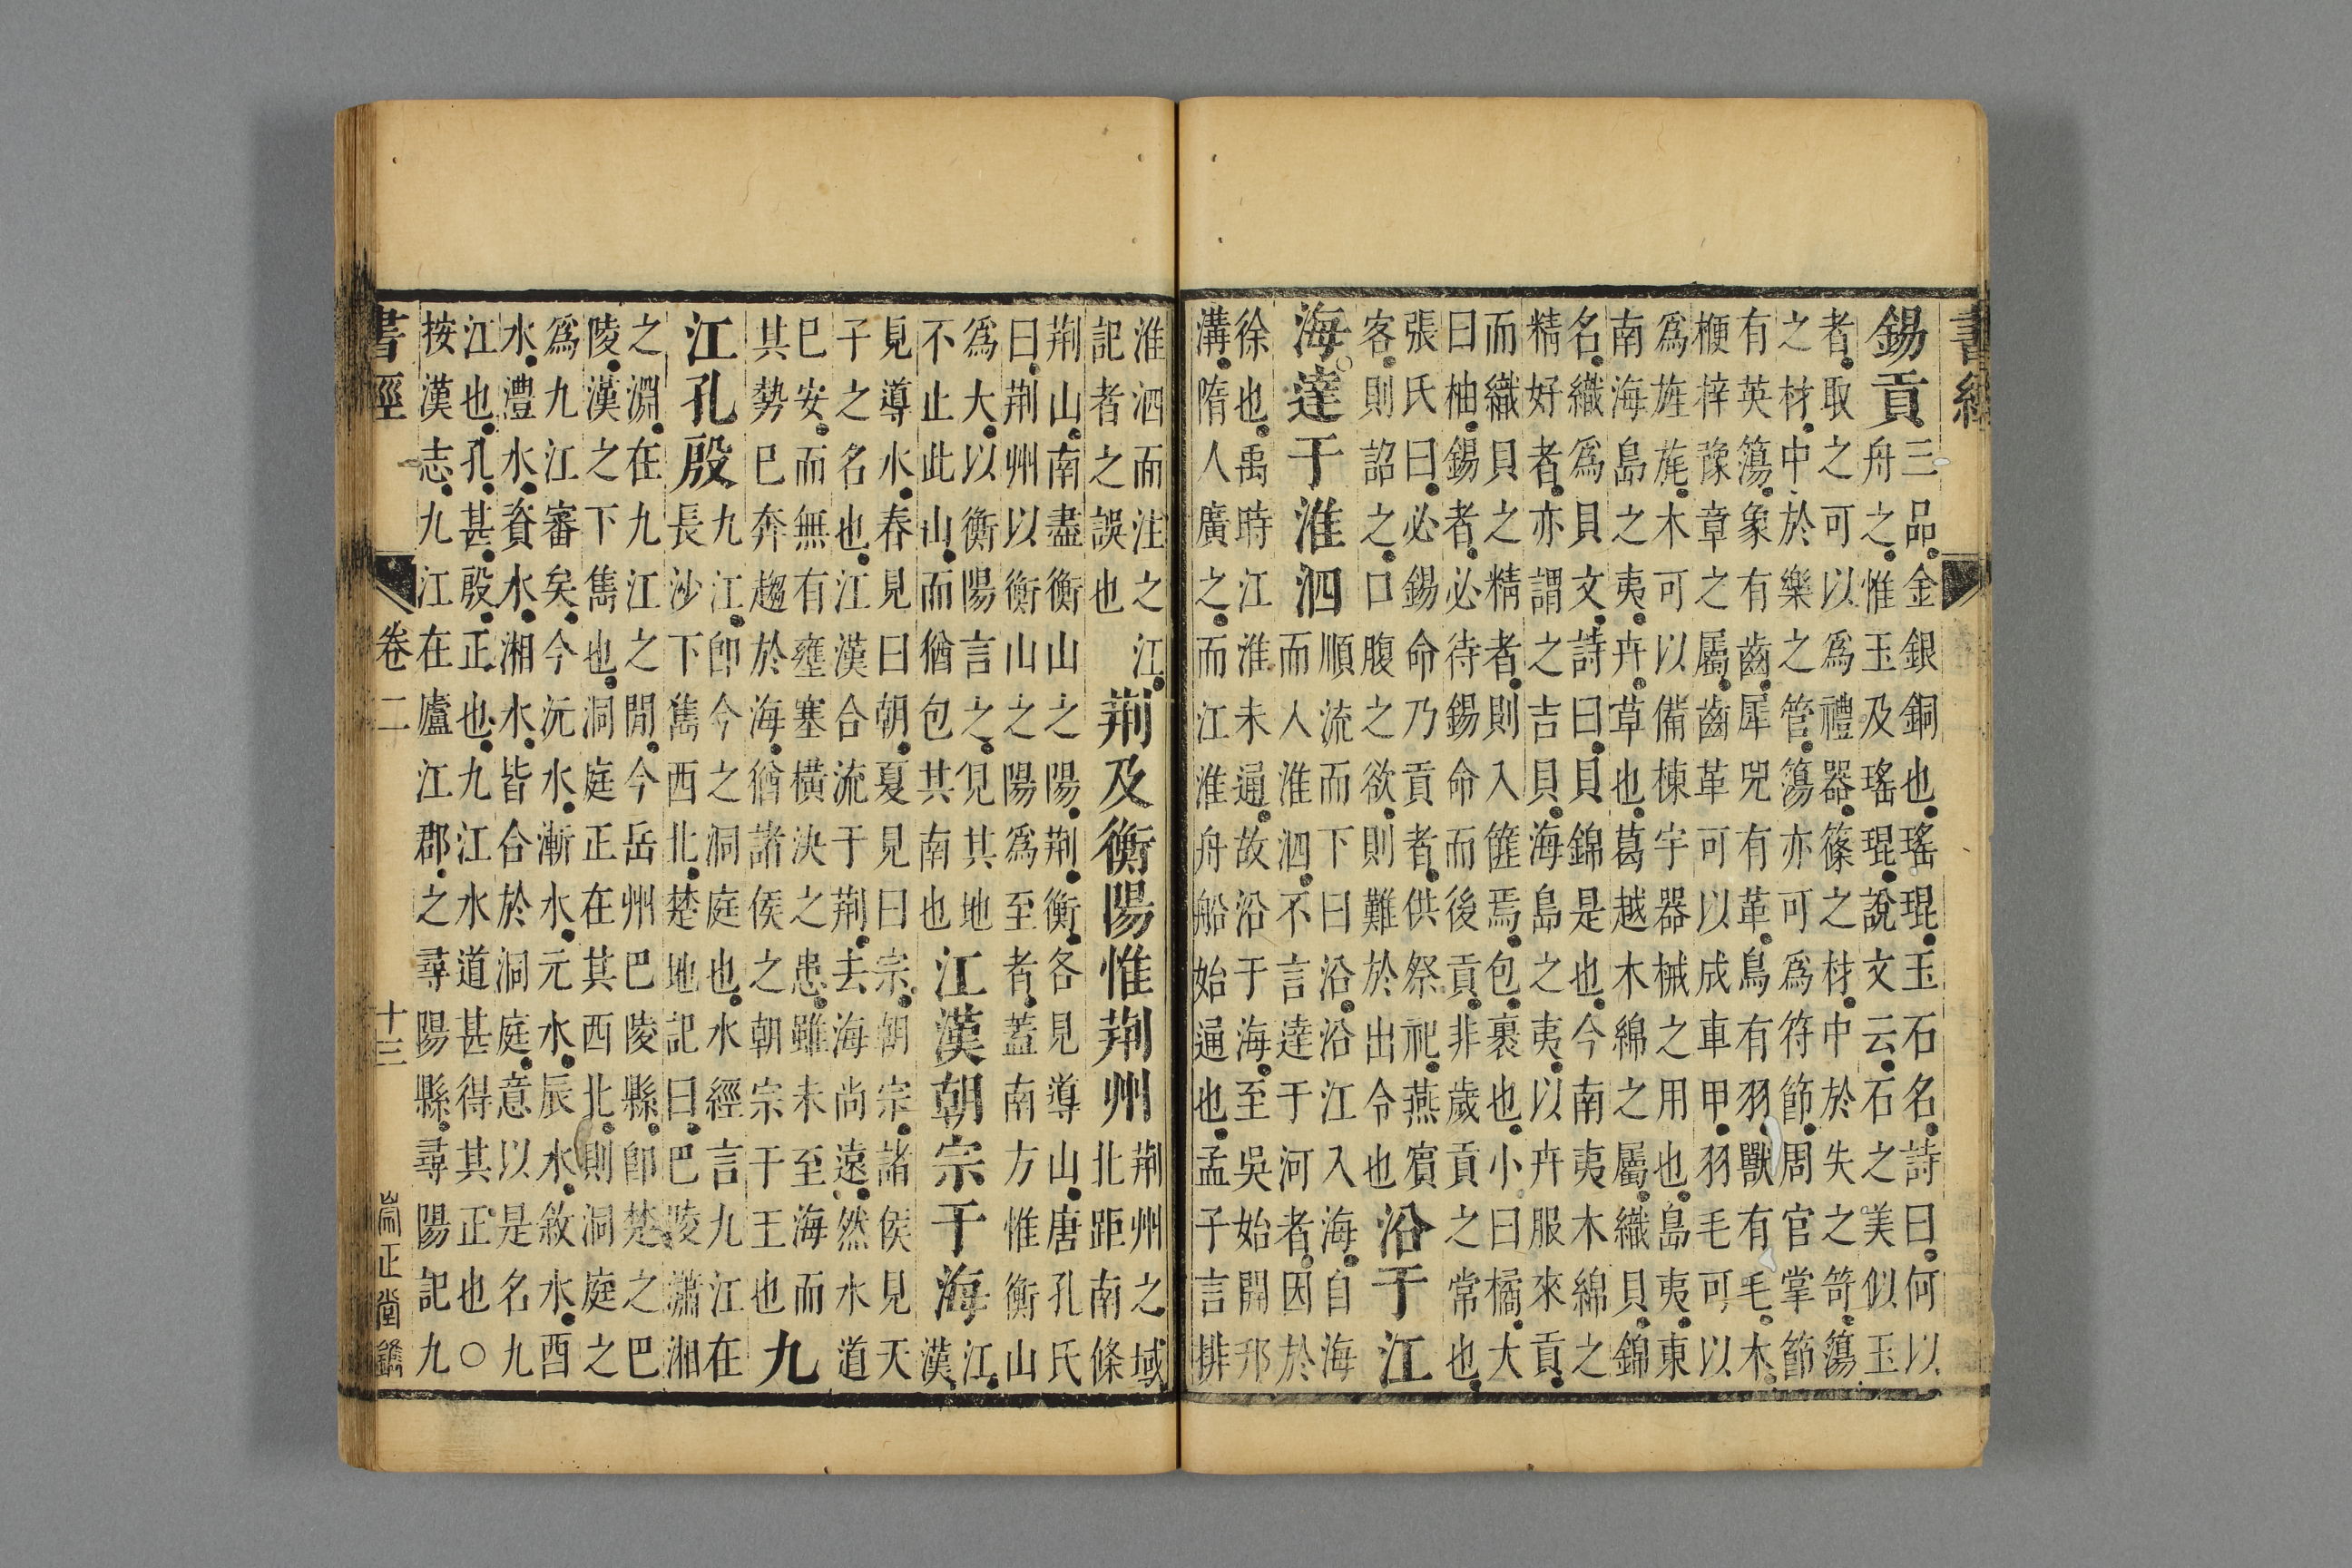 書經
錫貢
三品金銀銅也瑤琨玉石名詩曰何以
舟之惟玉及瑤琨說文云石之美似玉
者取之可以爲禮器篠之材中於失之笴簜
之材中於樂之管簜亦可爲符節周官掌節
有英簜象有齒犀兕有革鳥有羽獸有毛木
楩梓豫章之屬齒革可以成車甲羽毛可以
爲旌旄木可以備棟宇器械之用也島夷東
南海島之夷卉草也葛越木綿之屬織貝錦
名織爲貝文詩曰貝錦是也今南夷木綿之
精好者亦謂之吉貝海島之夷以卉服來貢
而織貝之精者則入篚焉包裹也小曰橘大
曰柚錫者必待錫命而後貢非歲貢之常也
張氏曰必錫命乃貢者供祭祀燕賓
客則詔之口腹之欲則難於出令也
沿于江
海達于淮泗
順流而下曰沿沿江入海自海
而入淮泗不言達于河者因於
徐也禹時江淮未通故沿于海至吳始開邗
溝隋人廣之而江淮舟船始通也孟子言排
淮泗而注之江
記者之誤也
荆及衡陽惟荆州
荆州之域
北距南條
荆山南盡衡山之陽荆衡各見導山唐孔氏
曰荆州以衡山之陽爲至者蓋南方惟衡山
爲大以衡陽言之見其地
不止此山而猶包其南也
江漢朝宗于海
江
漢
見導水春見曰朝夏見曰宗朝宗諸侯見天
子之名也江漢合流于荆去海尚遠然水道
已安而無有壅塞橫決之患雖未至海而
其勢已奔趨於海猶諸侯之朝宗于王也
九
江孔殷
九江卽今之洞庭也水經言九江在
長沙下雋西北楚地記曰巴陵瀟湘
之淵在九江之閒今岳州巴陵縣卽楚之巴
陵漢之下雋也洞庭正在其西北則洞庭之
爲九江審矣今沅水漸水元水辰水敘水酉
水澧水資水湘水皆合於洞庭意以是名九
江也孔甚殷正也九江水道甚得其正也○
按漢志九江在廬江郡之尋陽縣尋陽記九
書經 卷二 十三 崇正堂鐫